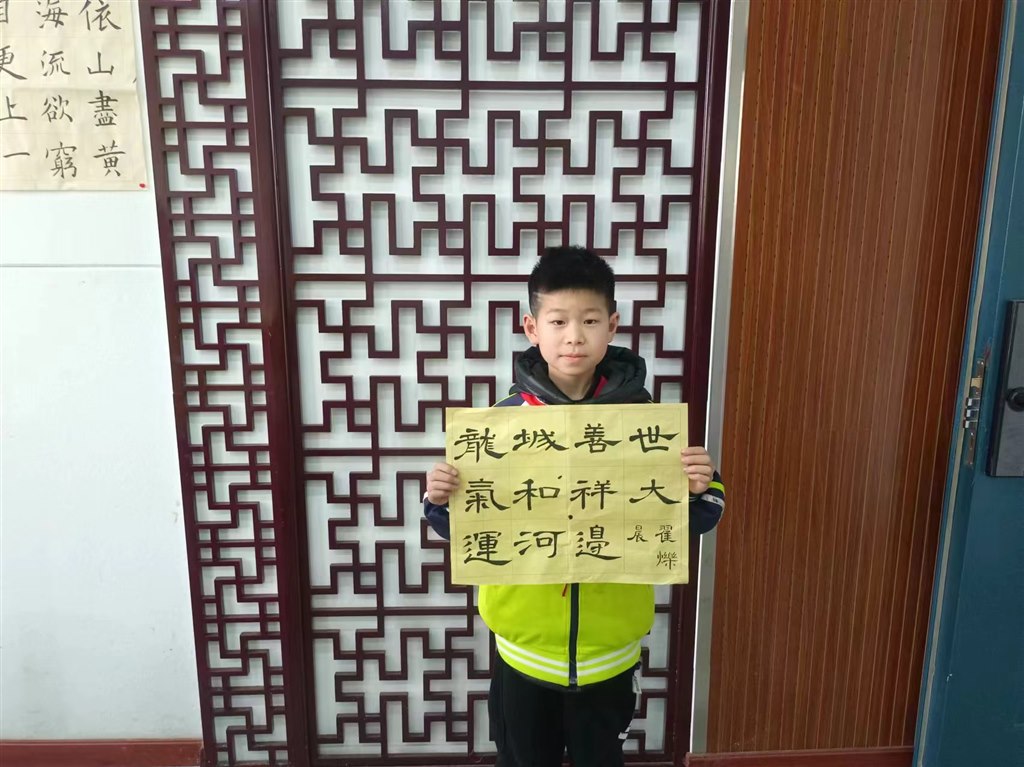 依山盡黃
海流欲窮
更上一
龍城善世
氣和祥大
運河邊
翟爍
晨